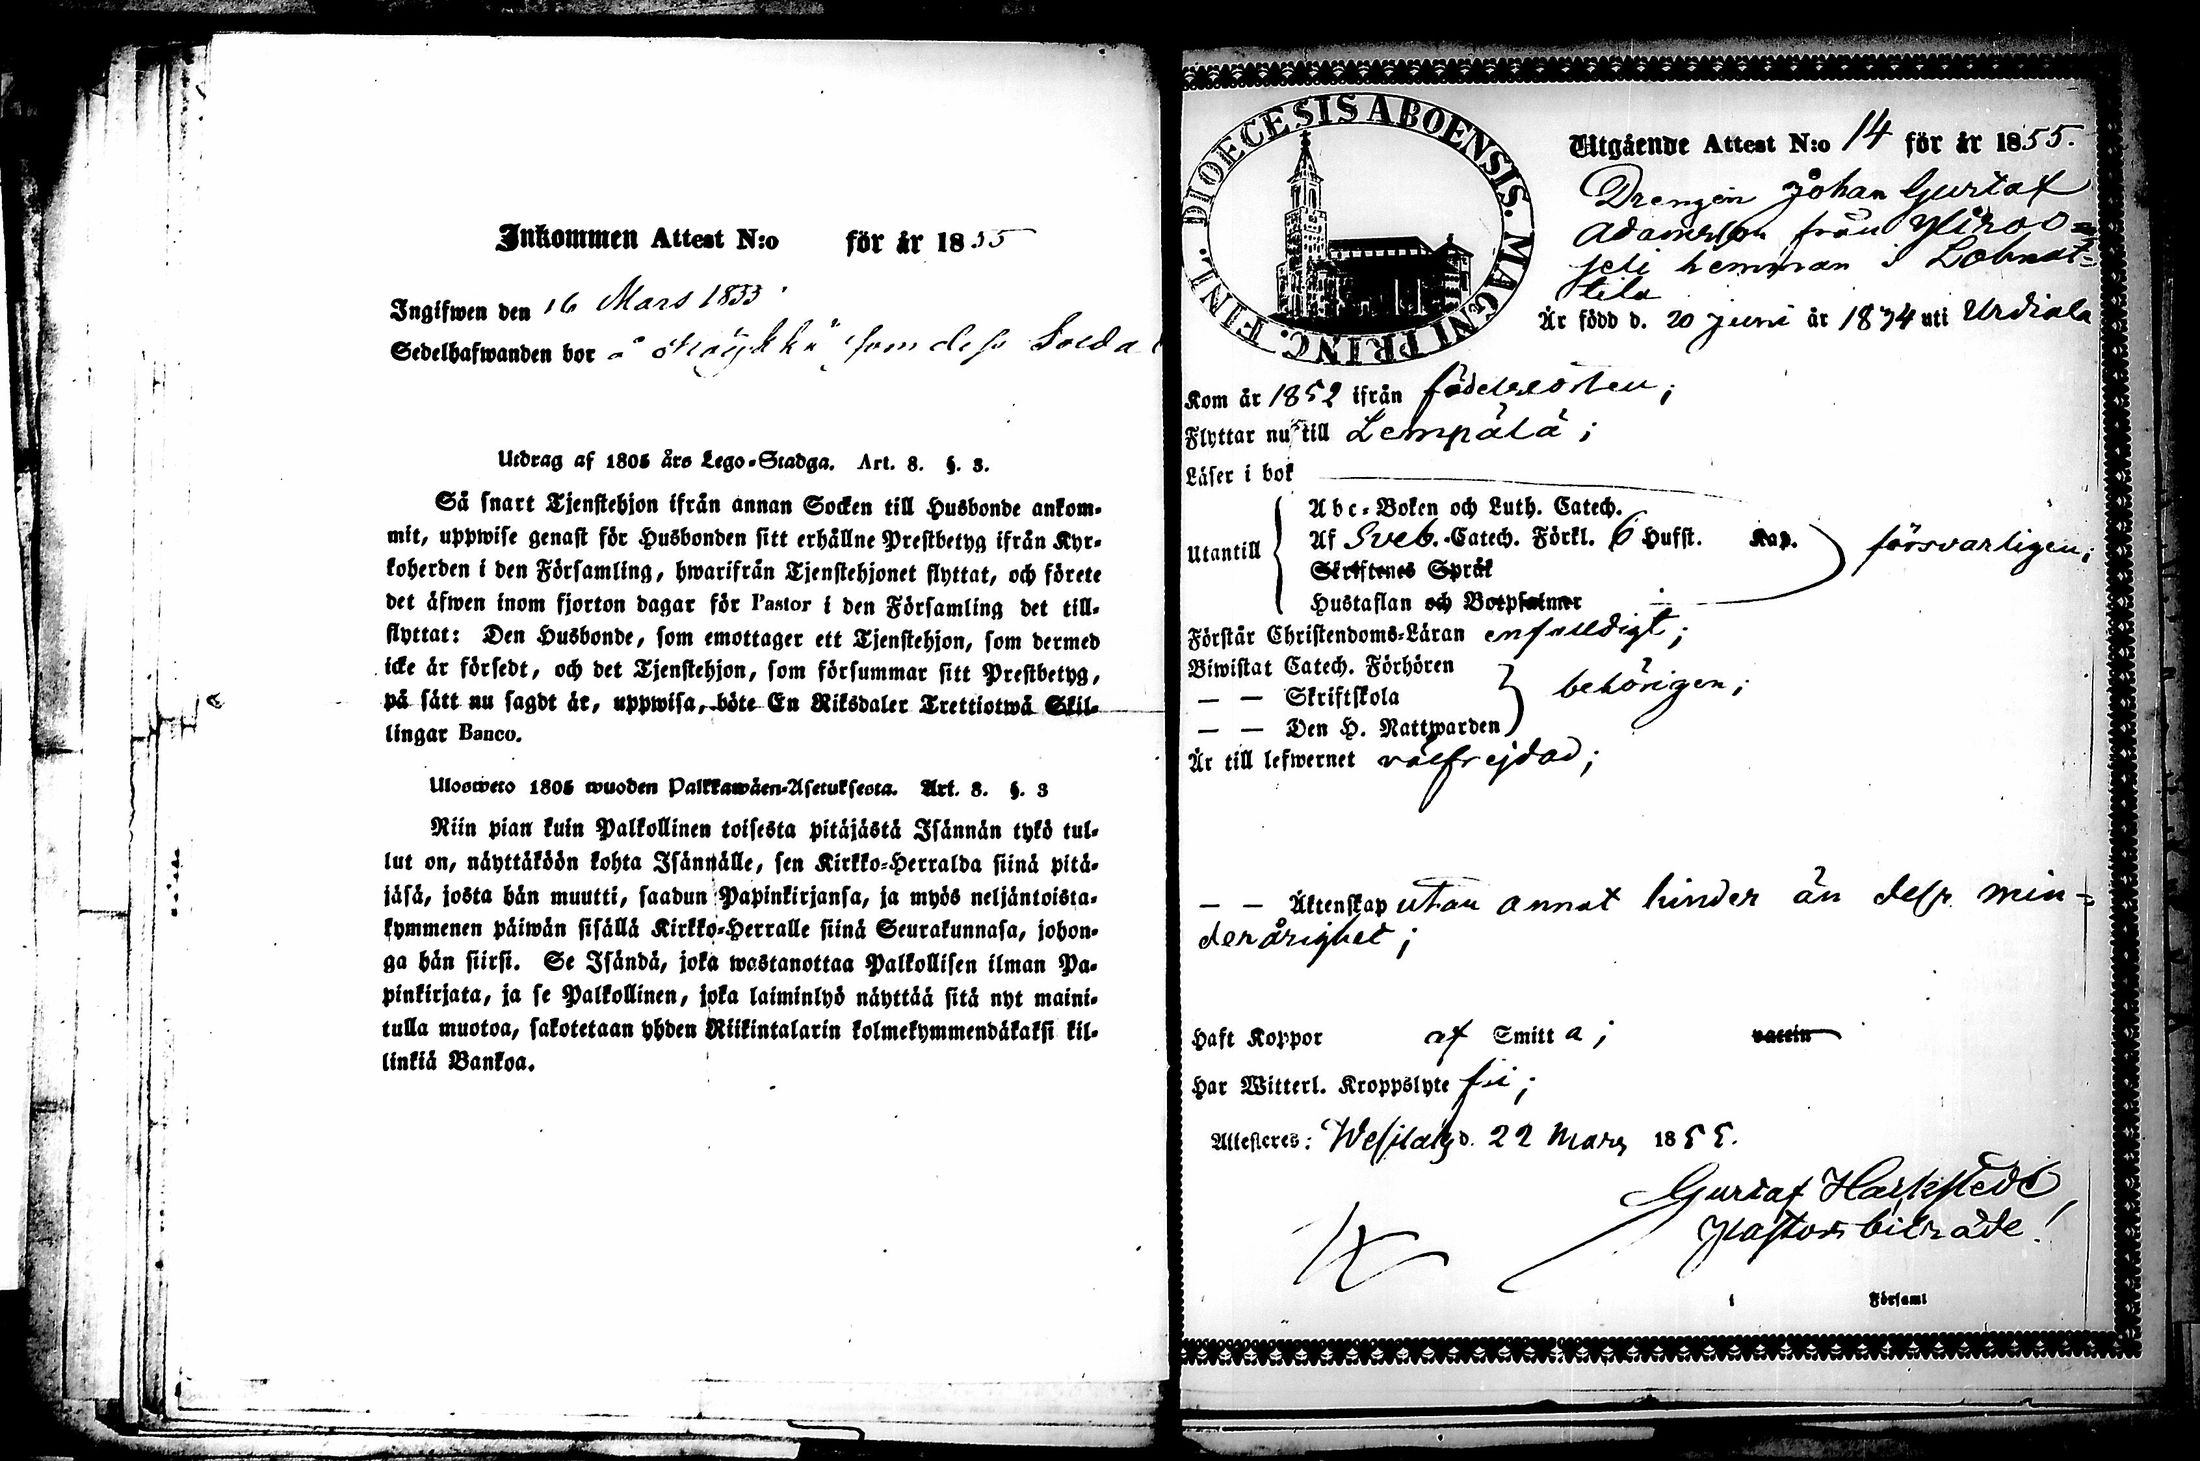 Inkommen Attest N:o för år 1855
Ingifwen den 16 Mars 1855
Sedelhafwanden bor å som dess Solda
Utdrag af 1805 års Lego-Stadga. Art. 8. §. 3.
Så snart Tjenstehjon ifrån annan Socken till Husbonde ankom-
mit, uppwise genast för Husbonden sitt erhållne Prestbetyg ifrån Kyr-
koherden i den Församling, hwarifrån Tjenstehjonet flyttat, och förete
det äfwen inom fjorton dagar för Pastor i den Församling det till-
flyttat: Den Husbonde, som emottager ett Tjenstehjon, som dermed
icke är försedt, och det Tjenstehjon, som försummar sitt Prestbetyg,
på sätt nu sagdt är, uppwisa, böte En Riksdaler Trettiotwå Skil-
lingar Banco.
Ulosweto 1805 wuoden Palkkawäen-Asetuksesta. Art. 8. §. 3
Niin pian kuin Palkollinen toisesta pitäjästä Isännän tykö tul-
lut on, näyttäköön kohta Isännälle, sen Kirkko-Herralda siinä pitä-
jäsä, josta hän muutti, saadun Papinkirjansa, ja myös neljäntoista-
kymmenen päiwän sisällä Kirkko-Herralle siinä Seurakunnasa, johon-
ga hän siirsi. Se Isändä, joka wastanottaa Palkollisen ilman Pa-
pinkirjata, ja se Palkollinen, joka laiminlyö näyttää sitä nyt maini-
tulla muotoa, sakotetaan yhden Riikintalarin kolmekymmendäkaksi kil-
linkiä Bankoa.
DIOECESIS ABOENSIS. MAGNI PRINC. FINL.
Utgående Attest N:o 14 för år 1855.
Drengen Johan Gustaf
Adamsson från
hemman i
tila
Är född d. 20 Juni år 1834 uti Urdiala
Kom år 1852 ifrån födelseorten;
Flyttar nu till Lempälä;
Läser i bok
Abc-Boken och Luth. Catech.
Utantill Af Sveb. Catech. Förkl. 6 Hufst. Kap. försvarligen;
Skriftenes Språk
Hustaflan och Botpsalmer
Förstår Christendoms-Läran enfalldigt;
Biwistat Catech. Förhören
— — Skriftskola behörigen;
— — Den H. Nattwarden
Är till lefwernet välfrejdad;
— — Äktenskap utan annat hinder än dess min-
derårighet;
Haft Koppor af Smitta; vaccin
Har Witterl. Kroppslyte fri;
Attesteres: Wesilax d. 22 Mars 1855.
Gustaf
Pastorsbiträde!
i Församl